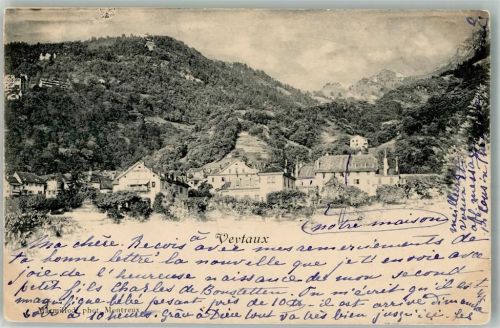 Vertaux
(notre maison)
Ma chère. Reçois avec mes remerciements de
ta bonne lettre la nouvelle que je t'envoie avec
joie de l'heureuse naissance de mon second
petit fils Charles de Bonstetten. On m'écrit qu'il est
magnifique bébé pesant près de 10 il est arrivé dimanche
à 10 heures. Grâce à Dieu tout va très bien jusqu'ici.
phot. Montreux
meilleurs
affectueux